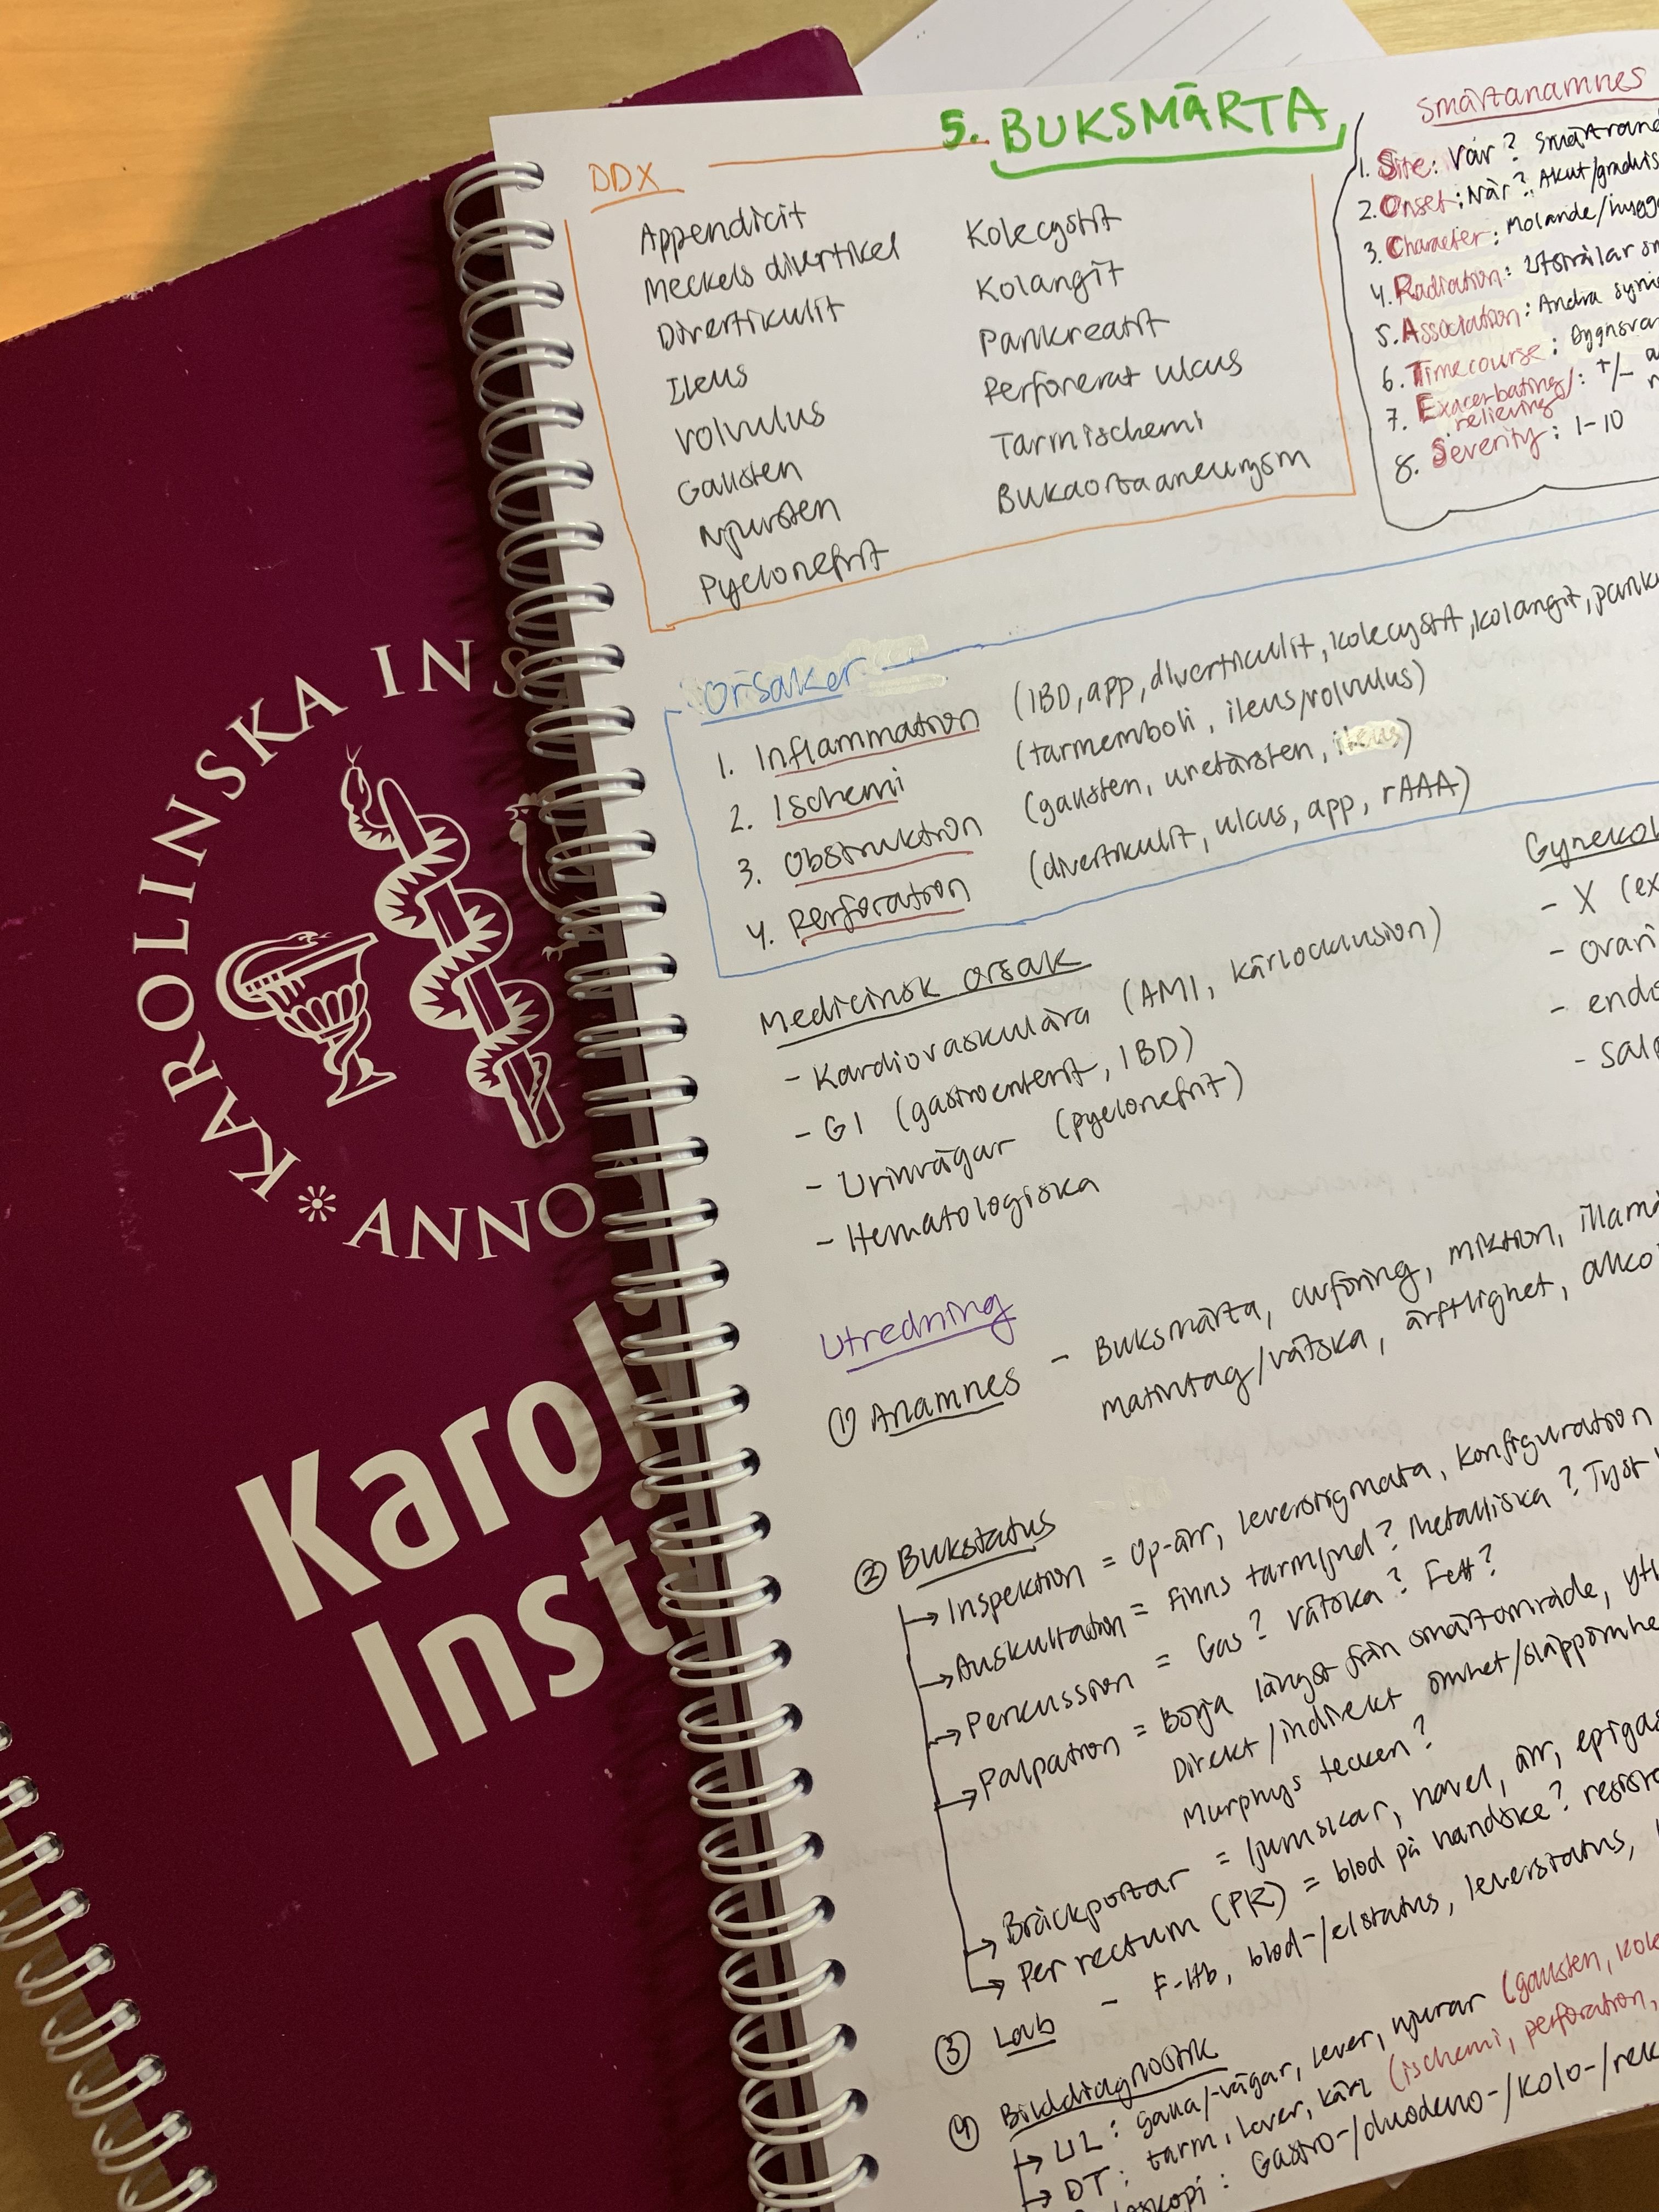 KAROLINSKA INS
ANNO
Karol
Inst
5. BUKSMÄRTA
DDX
Appendicit
Meckels divertikel
Divertikulit
Ileus
Volvulus
Gallsten
Njursten
Pyelonefrit
Kolecystit
Kolangit
Pankreatit
Perforerat ulcus
Tarmischemi
Bukaortaaneurysm
Smärtanamnes
1. Site: Var?
2. Onset: När? Akut/gradvis
3. Character: Molande/hugg
4. Radiation: Utstrålar
5. Association: Andra
6. Timecourse: Dygnsvar
7. Exacerbating/relieving: +/-
8. Severity: 1-10
Orsaker
1. Inflammation (IBD, app, divertikulit, kolecystit, kolangit, pank
2. Ischemi (tarmemboli, ileus/volvulus)
3. Obstruktion (gallsten, uretärsten, ileus)
4. Perforation (divertikulit, ulcus, app, rAAA)
Medicinsk orsak
- Kardiovaskulära (AMI, kärlocklusion)
- GI (gastroenterit, IBD)
- Urinvägar (pyelonefrit)
- Hematologiska
Gynekol
- X (ex
- ovari
- endo
- salp
Utredning
① Anamnes - Buksmärta, avföring, miktion, illamå
matintag/vätska, ärftlighet, alko
② Bukstatus
→ Inspektion = Op-ärr, leverstigmata, konfiguration
→ Auskultation = Finns tarmljud? Metalliska? Tyst
→ Perkussion = Gas? Vätska? Fett?
→ Palpation = Börja längst från smärtområde, ytl
Direkt/indirekt ömhet/släppömhe
Murphys tecken?
→ Bråckportar = ljumskar, navel, ärr, epigas
→ Per rectum (PR) = blod på handske? resist
③ Lab - F-Hb, blod-/elstatus, leverstatus,
④ Bilddiagnostik
→ UL: galla/-vägar, lever, njurar (gallsten, kole
→ DT: tarm, lever, kärl (ischemi, perforation,
oskopi: Gastro-/duodeno-/kolo-/rek